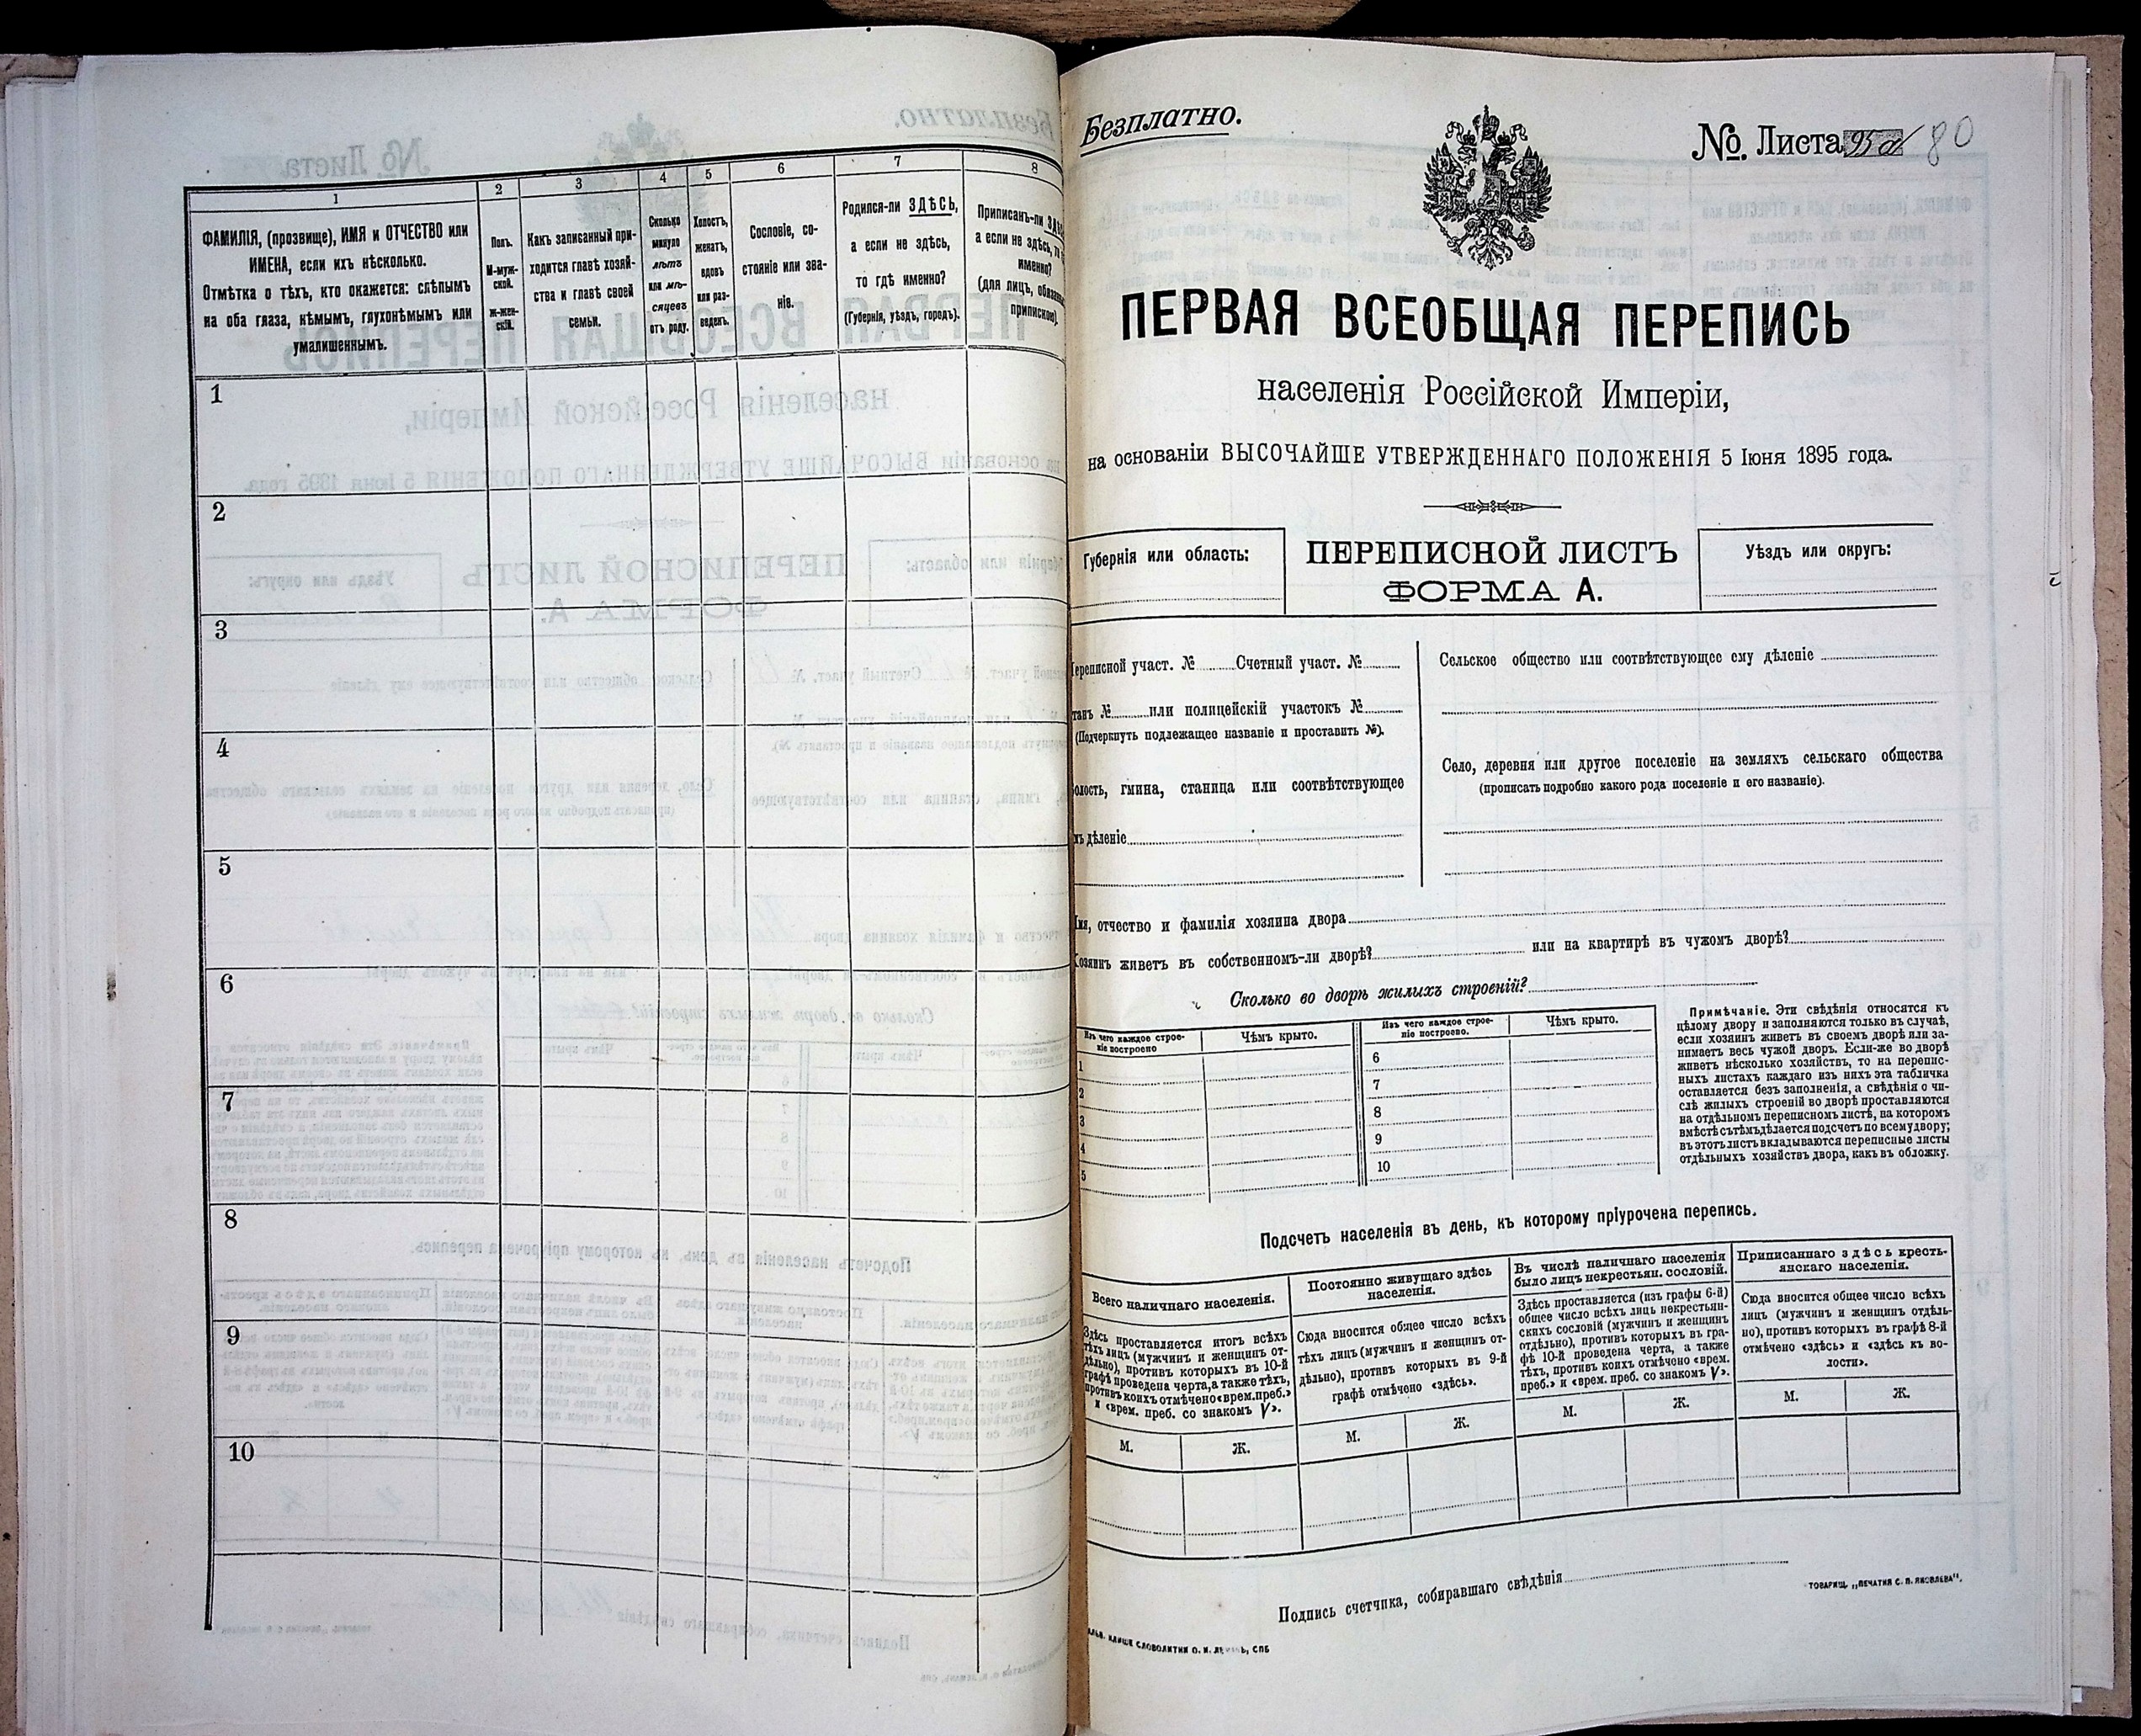 1
2
3
4
5
6
7
8
ФАМИЛІЯ, (прозвище), ИМЯ и ОТЧЕСТВО или
ИМЕНА, если ихъ нѣсколько.
Отмѣтка о тѣхъ, кто окажется: слѣпымъ
на оба глаза, нѣмымъ, глухонѣмымъ или
умалишеннымъ.
Полъ.
М-муж-
ской.
ж-жен-
скій.
Какъ записанный при-
ходится главѣ хозяй-
ства и главѣ своей
семьи.
Сколько
минуло
лѣтъ
или мѣ-
сяцевъ
отъ роду.
Холостъ,
женатъ,
вдовъ
или раз-
веденъ.
Сословіе, со-
стояніе или зва-
ніе.
Родился-ли ЗДѢСЬ,
а если не здѣсь,
то гдѣ именно?
(Губернія, уѣздъ, городъ).
Приписанъ-ли
а если не здѣсь,
именно?
(для лицъ,
припискою).
1
2
3
4
5
6
7
8
9
10
Безплатно.
№ Листа 80
ПЕРВАЯ ВСЕОБЩАЯ ПЕРЕПИСЬ
населенія Россійской Имперіи,
на основаніи ВЫСОЧАЙШЕ УТВЕРЖДЕННАГО ПОЛОЖЕНІЯ 5 Іюня 1895 года.
Губернія или область:
ПЕРЕПИСНОЙ ЛИСТЪ
ФОРМА А.
Уѣздъ или округъ:
участ. № Счетный участ. №
№ или полицейскій участокъ №
(Подчеркнуть подлежащее названіе и проставить №).
гмина, станица или соотвѣтствующее
дѣленіе
Сельское общество или соотвѣтствующее ему дѣленіе
Село, деревня или другое поселеніе на земляхъ сельскаго общества
(прописать подробно какого рода поселеніе и его названіе).
отчество и фамилія хозяина двора
живетъ въ собственномъ-ли дворѣ? или на квартирѣ въ чужомъ дворѣ?
Сколько во дворѣ жилыхъ строеній?
Изъ чего каждое строе-
ніе построено
Чѣмъ крыто.
Изъ чего каждое строе-
ніе построено.
Чѣмъ крыто.
1
2
3
4
5
6
7
8
9
10
Примѣчаніе. Эти свѣдѣнія относятся къ
цѣлому двору и заполняются только въ случаѣ,
если хозяинъ живетъ въ своемъ дворѣ или за-
нимаетъ весь чужой дворъ. Если-же во дворѣ
живетъ нѣсколько хозяйствъ, то на перепис-
ныхъ листахъ каждаго изъ нихъ эта табличка
оставляется безъ заполненія, а свѣдѣнія о чи-
слѣ жилыхъ строеній во дворѣ проставляются
на отдѣльномъ переписномъ листѣ, на которомъ
вмѣстѣ съ тѣмъ дѣлается подсчетъ по всему двору;
въ этотъ листъ вкладываются переписные листы
отдѣльныхъ хозяйствъ двора, какъ въ обложку.
Подсчетъ населенія въ день, къ которому пріурочена перепись.
Всего наличнаго населенія.
Здѣсь проставляется итогъ всѣхъ
тѣхъ лицъ (мужчинъ и женщинъ от-
дѣльно), противъ которыхъ въ 10-й
графѣ проведена черта, а также тѣхъ,
противъ коихъ отмѣчено «врем. преб.»
и «врем. преб. со знакомъ V».
М. Ж.
Постоянно живущаго здѣсь
населенія.
Сюда вносится общее число всѣхъ
тѣхъ лицъ (мужчинъ и женщинъ от-
дѣльно), противъ которыхъ въ 9-й
графѣ отмѣчено «здѣсь».
М. Ж.
Въ числѣ наличнаго населенія
было лицъ некрестьян. сословій.
Здѣсь проставляется (изъ графы 6-й)
общее число всѣхъ лицъ некрестьян-
скихъ сословій (мужчинъ и женщинъ
отдѣльно), противъ которыхъ въ гра-
фѣ 10-й проведена черта, а также
тѣхъ, противъ коихъ отмѣчено «врем.
преб.» и «врем. преб. со знакомъ V».
М. Ж.
Приписаннаго здѣсь кресть-
янскаго населенія.
Сюда вносится общее число всѣхъ
лицъ (мужчинъ и женщинъ отдѣль-
но), противъ которыхъ въ графѣ 8-й
отмѣчено «здѣсь» и «здѣсь къ во-
лости».
М. Ж.
Подпись счетчика, собиравшаго свѣдѣнія
ТОВАРИЩ. „ПЕЧАТНЯ С. П. ЯКОВЛЕВА“.
КЛИШЕ СЛОВОЛИТНИ О. И. СПБ